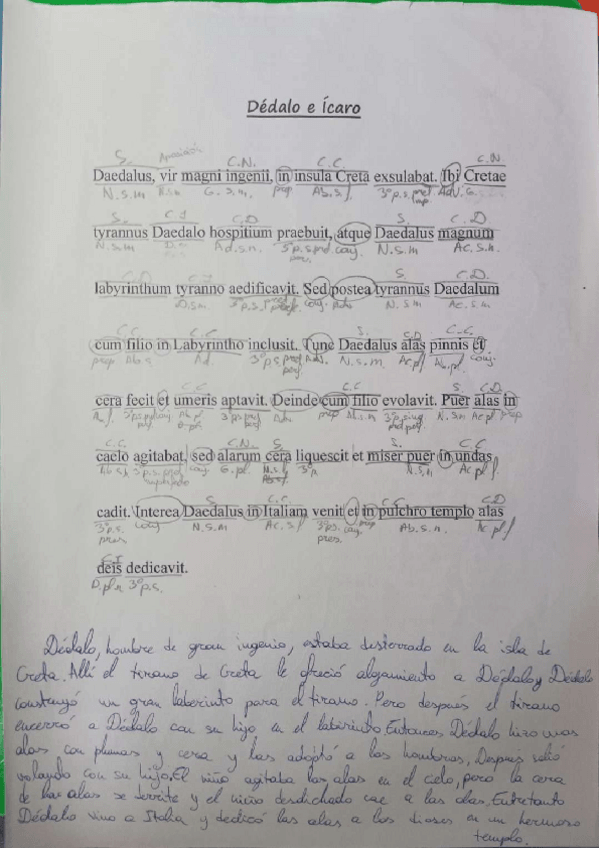 Dédalo e Ícaro
S. Aposición C.N. C.C. C.N.
Daedalus, vir magni ingenii, in insula Creta exsulabat. Ibi Cretae
N.s.m N.s.m G.s.n. prep Ab.s.f 3ªp.s. Adv. G.
S. C.I C.D S. C.D
tyrannus Daedalo hospitium praebuit, atque Daedalus magnum
N.s.m D.s.m conj. N.s.m Ac.s.n.
S. C.D.
labyrinthum tyranno aedificavit. Sed postea tyrannus Daedalum
D.s.m 3ªp.s. conj. N.s.m Ac.s.m
C.C. C.C. S. C.D C.C.
cum filio in Labyrintho inclusit. Tunc Daedalus alas pinnis et
prep Ab.s. 3ªp.s. Adv. N.s.m. Ac.pl Ab.pl. conj.
C.C S. C.D.
cera fecit et umeris aptavit. Deinde cum filio evolavit. Puer alas in
prep N.s.m Ac.pl prep
C.C. C.N. S S. C.C
caelo agitabat, sed alarum cera liquescit et miser puer in undas
conj G.pl N.s.f 3ªp. N.s.m Ac pl f.
S C.C. C.C C.D
cadit. Interea Daedalus in Italiam venit et in pulchro templo alas
3ªp.s. pres conj N.s.m Ac.s.f 3ªp.s. pres. conj prep Ab.s.n. Ac pl f
C.I
deis dedicavit.
D.pl 3ªp.s.
Dédalo, hombre de gran ingenio, estaba desterrado en la isla de
Creta. Allí el tirano de Creta le ofreció alojamiento a Dédalo y Dédalo
construyó un gran laberinto para el tirano. Pero después el tirano
encerró a Dédalo con su hijo en el laberinto. Entonces Dédalo hizo unas
alas con plumas y cera y las adaptó a los hombros. Después salió
volando con su hijo. El niño agitaba las alas en el cielo, pero la cera
de las alas se derrite y el niño desdichado cae a las olas. Entretanto
Dédalo vino a Italia y dedicó las alas a los dioses en un hermoso
templo.